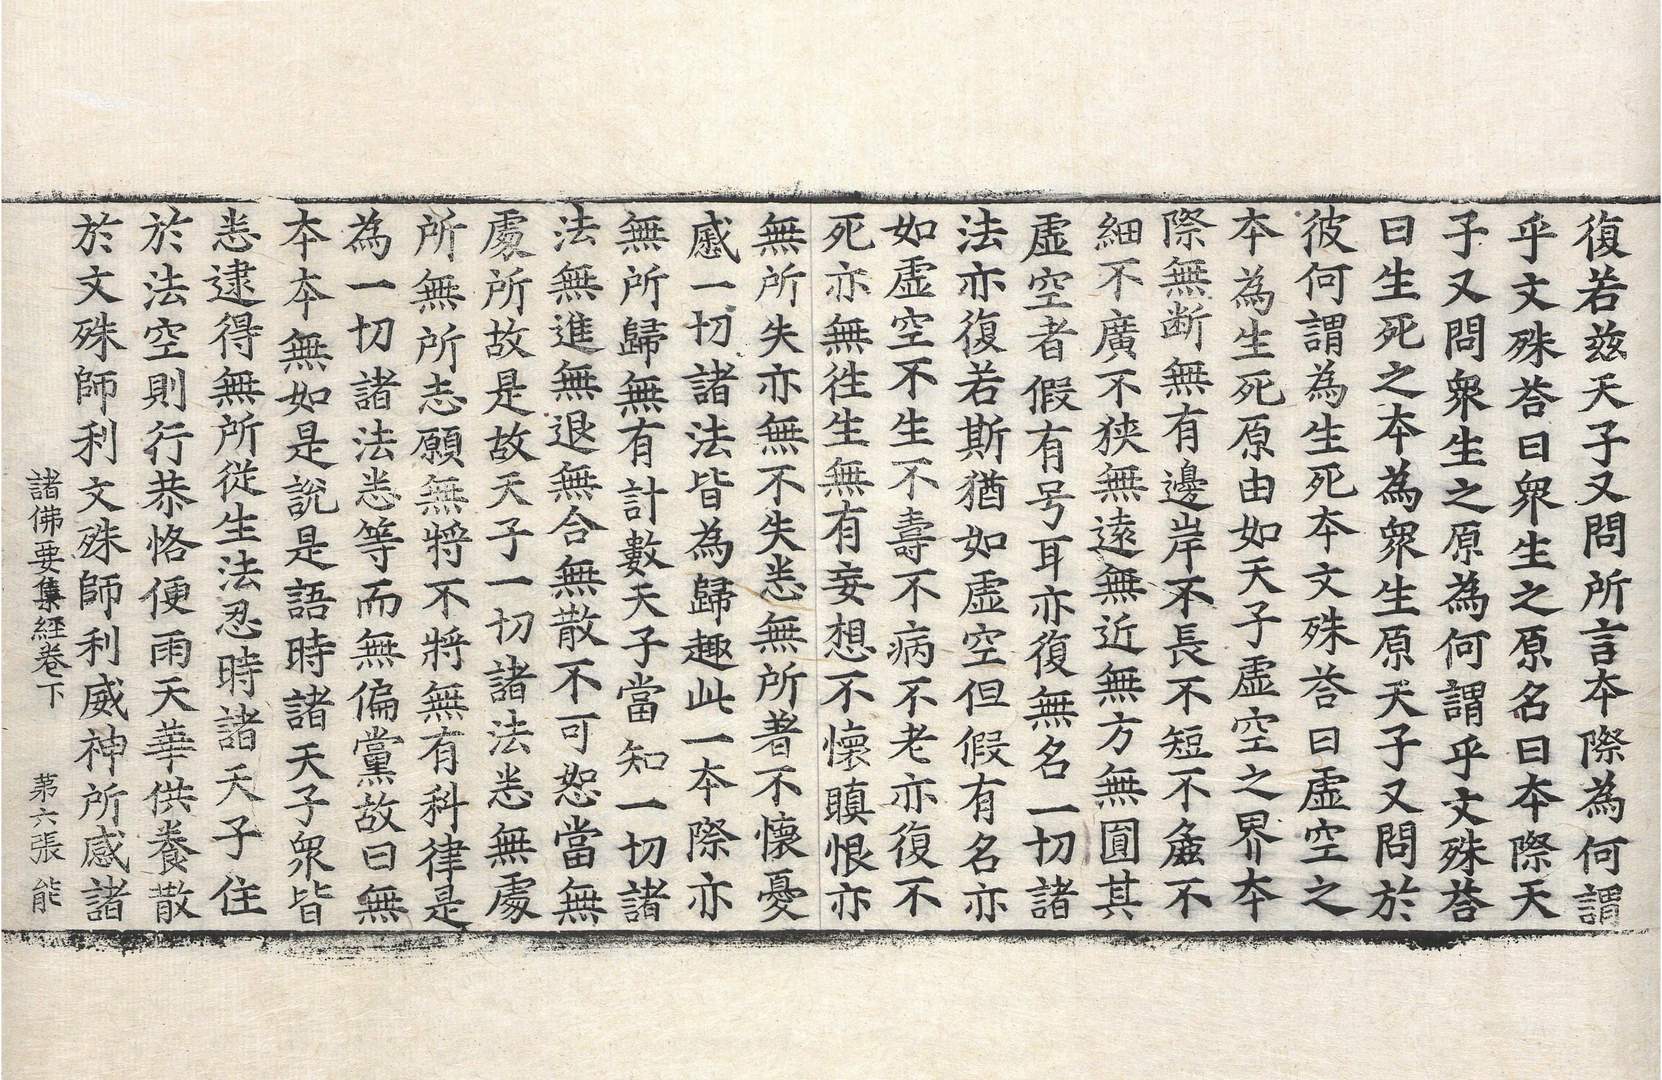 復若玆天子又問所言本際為何謂
乎文殊荅曰衆生之原名曰本際天
子又問衆生之原為何謂乎文殊荅
曰生死之本為衆生原天子又問於
彼何謂為生死本文殊荅曰虛空之
本為生死原由如天子虛空之界本
際無断無有邊岸不長不短不麁不
細不廣不狹無遠無近無方無圓其
虛空者假有号耳亦復無名一切諸
法亦復若斯猶如虛空但假有名亦
如虛空不生不壽不病不老亦復不
死亦無徃生無有妄想不懷瞋恨亦
無所失亦無不失悉無所著不懷憂
慼一切諸法皆為歸趣此一本際亦
無所歸無有計數天子當知一切諸
法無進無退無合無散不可恕當無
處所故是故天子一切諸法悉無處
所無所志願無將不將無有科律是
為一切諸法悉等而無偏黨故曰無
本本無如是說是語時諸天子衆皆
悉逮得無所從生法忍時諸天子住
於法空則行恭恪便雨天華供養散
於文殊師利文殊師利威神所感諸
諸佛要集經卷下 第六張 能